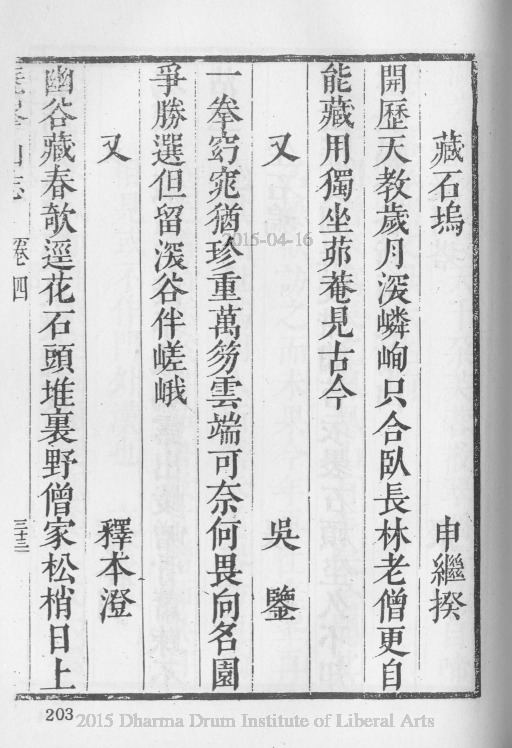 藏石塢 申繼揆
開歷天教歲月深嶙峋只合臥長林老僧更自
能藏用獨坐茆菴見古今
又 吳鑒
一拳窈窕猶珍重萬笏雲端可奈何畏向名園
爭勝選但留深谷伴嵯峨
又 釋本澄
幽谷藏春欹逕花石頭堆裏野僧家松梢日上
山志 卷四 三十三
203
2015-04-16
2015 Dharma Drum Institute of Liberal Arts